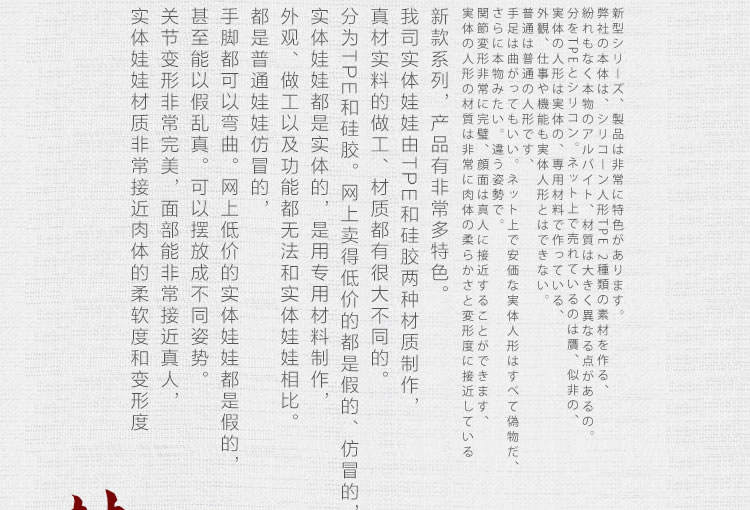 新型シリーズ、製品は非常に特色があります。
弊社の本体は、シリコーン人形TPE 2種類の素材を作る、
紛れもなく本物のアルバイト、材質は大きく異なる点があるの。
分をTPEとシリコン。ネット上で売れているのは贋、似非の、
実体の人形は実体の、専用材料で作っている、
外観、仕事や機能も実体人形とはできない。
普通は普通の人形です、
手足は曲がってもいい。ネット上で安価な実体人形はすべて偽物だ、
さらに本物みたい。違う姿勢で。
関節変形非常に完璧、顔面は真人に接近することができます、
実体の人形の材質は非常に肉体の柔らかさと変形度に接近している
新款系列，产品有非常多特色。
我司实体娃娃由TPE和硅胶两种材质制作，
真材实料的做工、材质都有很大不同的。
分为TPE和硅胶。网上卖得低价的都是假的、仿冒的，
实体娃娃都是实体的，是用专用材料制作，
外观、做工以及功能都无法和实体娃娃相比。
都是普通娃娃仿冒的，
手脚都可以弯曲。网上低价的实体娃娃都是假的，
甚至能以假乱真。可以摆放成不同姿势。
关节变形非常完美，面部能非常接近真人，
实体娃娃材质非常接近肉体的柔软度和变形度